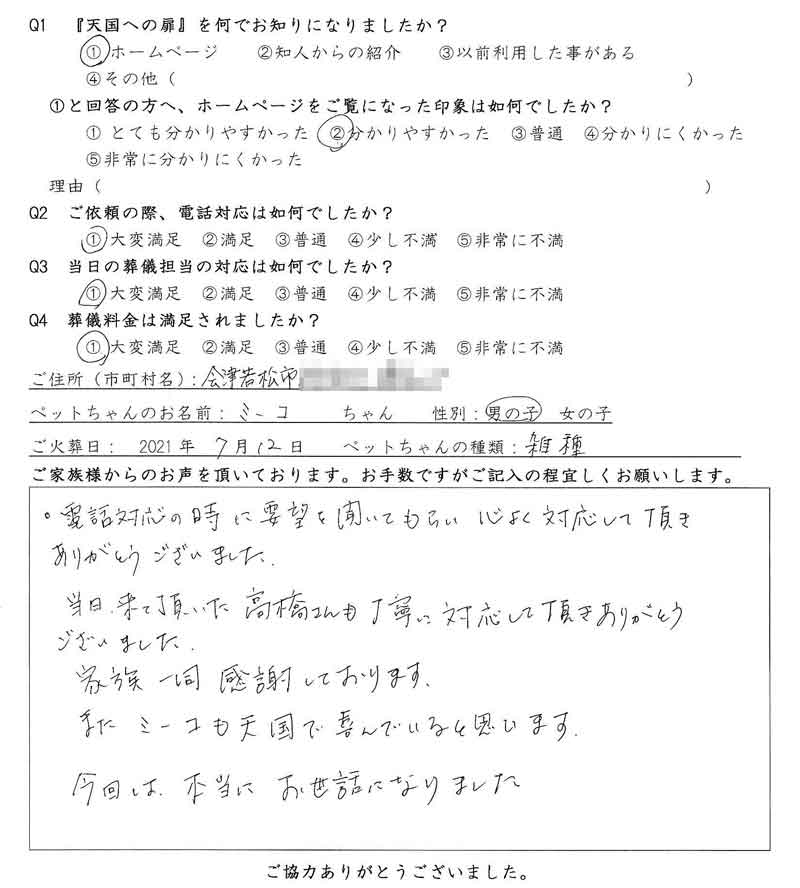 Q1 『天国への扉』を何でお知りになりましたか?
①ホームページ ②知人からの紹介 ③以前利用した事がある
④その他( )
①と回答の方へ、ホームページをご覧になった印象は如何でしたか?
① とても分かりやすかった ②分かりやすかった ③普通 ④分かりにくかった
⑤非常に分かりにくかった
理由( )
Q2 ご依頼の際、電話対応は如何でしたか?
①大変満足 ②満足 ③普通 ④少し不満 ⑤非常に不満
Q3 当日の葬儀担当の対応は如何でしたか?
①大変満足 ②満足 ③普通 ④少し不満 ⑤非常に不満
Q4 葬儀料金は満足されましたか?
①大変満足 ②満足 ③普通 ④少し不満 ⑤非常に不満
ご住所(市町村名):会津若松市
ペットちゃんのお名前:ミーコ ちゃん 性別:男の子 女の子
ご火葬日: 2021年 7月12日 ペットちゃんの種類:雑種
ご家族様からのお声を頂いております。お手数ですがご記入の程宜しくお願いします。
。電話対応の時に要望を聞いてもらい 心よく対応して頂き
ありがとうございました。
当日、来て頂いた 高橋さんも丁寧に対応して頂きありがとう
ございました。
家族一同 感謝しております。
また ミーコも天国で喜んでいると思います。
今回は、本当に お世話になりました
ご協力ありがとうございました。